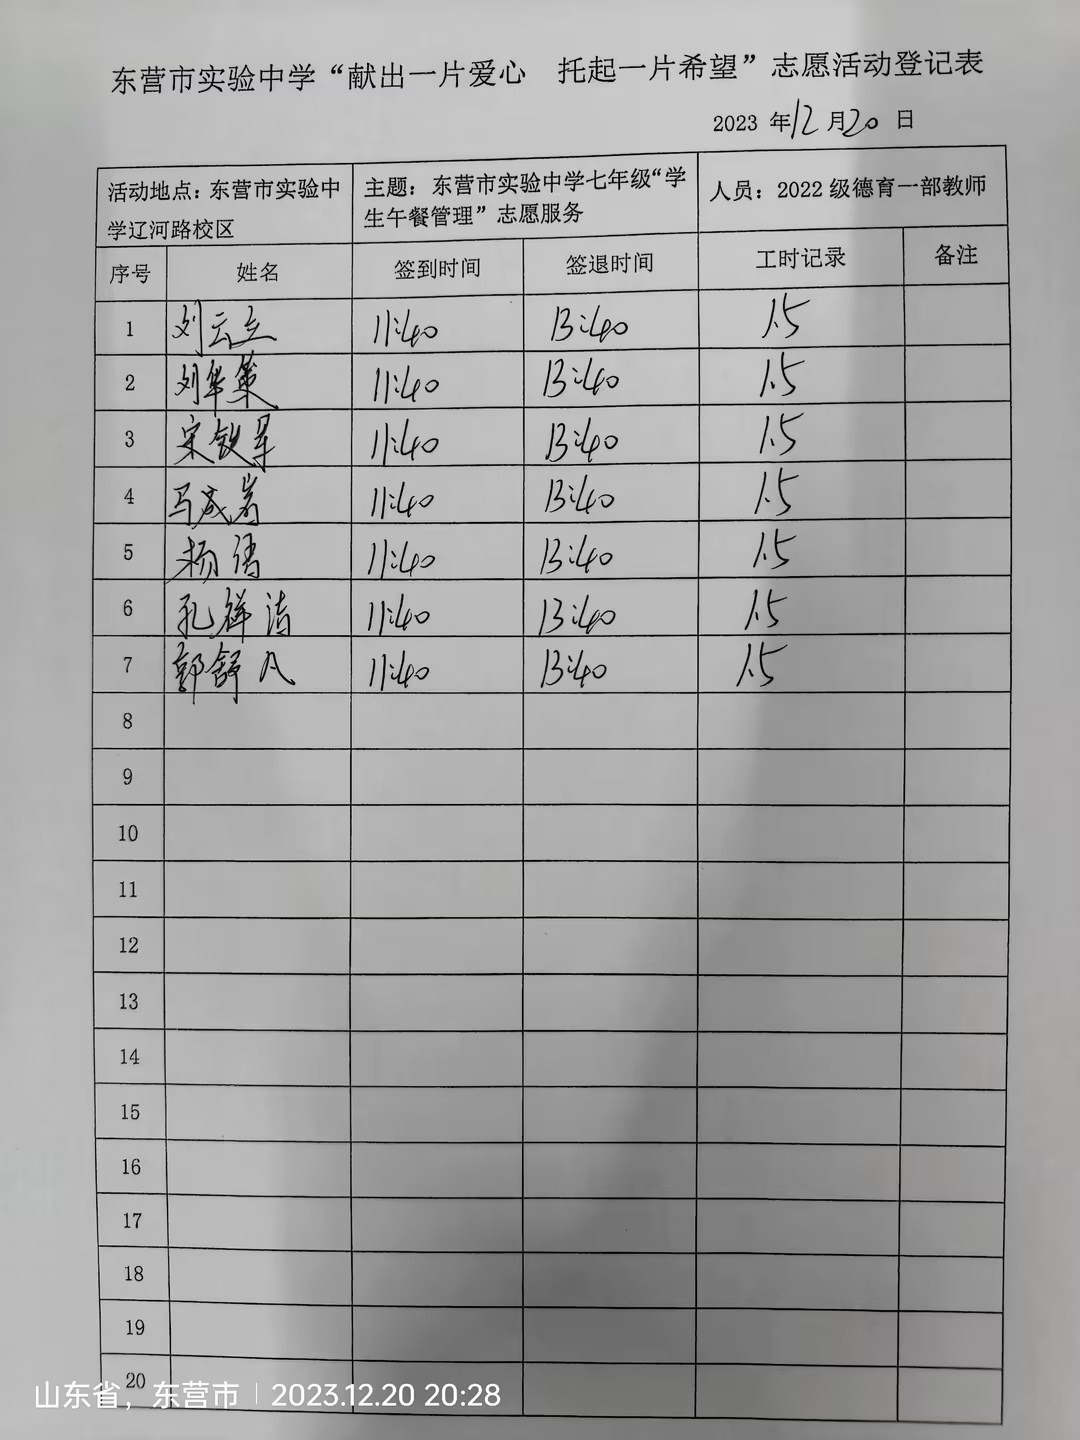 东营市实验中学“献出一片爱心 托起一片希望”志愿活动登记表
2023 年12月20 日
活动地点：东营市实验中
学辽河路校区
主题：东营市实验中学七年级“学
生午餐管理”志愿服务
人员：2022 级德育一部教师
序号 姓名 签到时间 签退时间 工时记录 备注
1 刘云立 11:40 13:40 1.5
2 刘华 11:40 13:40 1.5
3 宋 军 11:40 13:40 1.5
4 马成岩 11:40 13:40 1.5
5 杨 11:40 13:40 1.5
6 孔祥洁 11:40 13:40 1.5
7 郭舒凡 11:40 13:40 1.5
8
9
10
11
12
13
14
15
16
17
18
19
20
山东省，东营市 | 2023.12.20 20:28